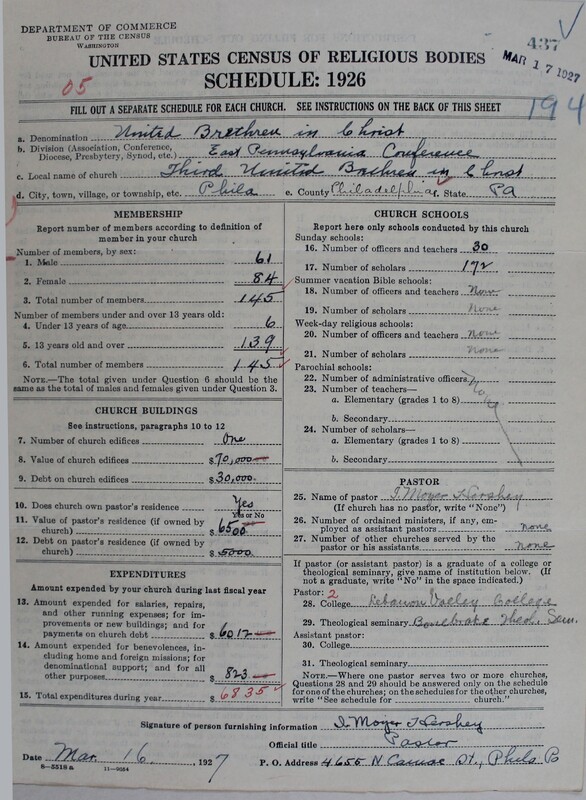 DEPARTMENT OF COMMERCE
BUREAU OF THE CENSUS
WASHINGTON
437
MAR 17 1927
UNITED STATES CENSUS OF RELIGIOUS BODIES
SCHEDULE: 1926
05
194
FILL OUT A SEPARATE SCHEDULE FOR EACH CHURCH. SEE INSTRUCTIONS ON THE BACK OF THIS SHEET
a. Denomination United Brethren in Christ
b. Division (Association, Conference, Diocese, Presbytery, Synod, etc.) East Pennsylvania Conference
c. Local name of church Third United Brethren in Christ
d. City, town, village, or township, etc. Phila e. County Philadelphia f. State Pa
MEMBERSHIP
Report number of members according to definition of member in your church
Number of members, by sex:
1. Male 61
2. Female 84
3. Total number of members 145
Number of members under and over 13 years old:
4. Under 13 years of age 6
5. 13 years old and over 139
6. Total number of members 145
NOTE.—The total given under Question 6 should be the same as the total of males and females given under Question 3.
CHURCH BUILDINGS
See instructions, paragraphs 10 to 12
7. Number of church edifices One
8. Value of church edifices $70,000
9. Debt on church edifices $30,000.
10. Does church own pastor's residence Yes
Yes or No
11. Value of pastor's residence (if owned by church) $6500
12. Debt on pastor's residence (if owned by church) $5000
EXPENDITURES
Amount expended by your church during last fiscal year
13. Amount expended for salaries, repairs, and other running expenses; for improvements or new buildings; and for payments on church debt $6012
14. Amount expended for benevolences, including home and foreign missions; for denominational support; and for all other purposes $823
15. Total expenditures during year $6835
CHURCH SCHOOLS
Report here only schools conducted by this church
Sunday schools:
16. Number of officers and teachers 30
17. Number of scholars 172
Summer vacation Bible schools:
18. Number of officers and teachers None
19. Number of scholars None
Week-day religious schools:
20. Number of officers and teachers None
21. Number of scholars None
Parochial schools:
22. Number of administrative officers None
23. Number of teachers—
a. Elementary (grades 1 to 8)
b. Secondary
24. Number of scholars—
a. Elementary (grades 1 to 8)
b. Secondary
PASTOR
25. Name of pastor I. Moyer Hershey
(If church has no pastor, write "None")
26. Number of ordained ministers, if any, employed as assistant pastors none
27. Number of other churches served by the pastor or his assistants none
If pastor (or assistant pastor) is a graduate of a college or theological seminary, give name of institution below. (If not a graduate, write "No" in the space indicated.)
Pastor: 2
28. College Lebanon Valley College
29. Theological seminary Bonebrake Theol. Sem.
Assistant pastor:
30. College
31. Theological seminary
NOTE.—Where one pastor serves two or more churches, Questions 28 and 29 should be answered only on the schedule for one of the churches; on the schedules for the other churches, write "See schedule for ____ church."
Signature of person furnishing information I. Moyer Hershey
Official title Pastor
Date Mar. 16, 1927 P. O. Address 4655 N Camac St., Phila Pa
8—5518 a 11—9064